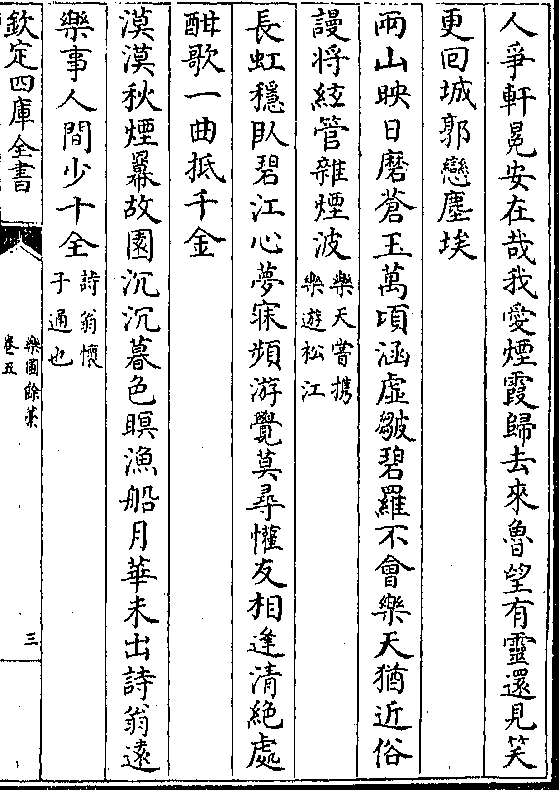 人爭軒冕安在哉我愛煙霞歸去來魯望有靈還見笑
更回城郭戀塵埃
兩山映日磨蒼玉萬頃涵虛皺碧羅不會樂天猶近俗
謾將絃管雜煙波樂天嘗携
樂遊松江
長虹穩臥碧江心夢寐頻游覺莫尋懽友相逢清絶處
酣歌一曲抵千金
漠漠秋煙羃故園沉沉暮色暝漁船月華未出詩翁遠
樂事人間少十全詩翁懷
子通也
欽定四庫全書
樂圃餘藁
卷五
三